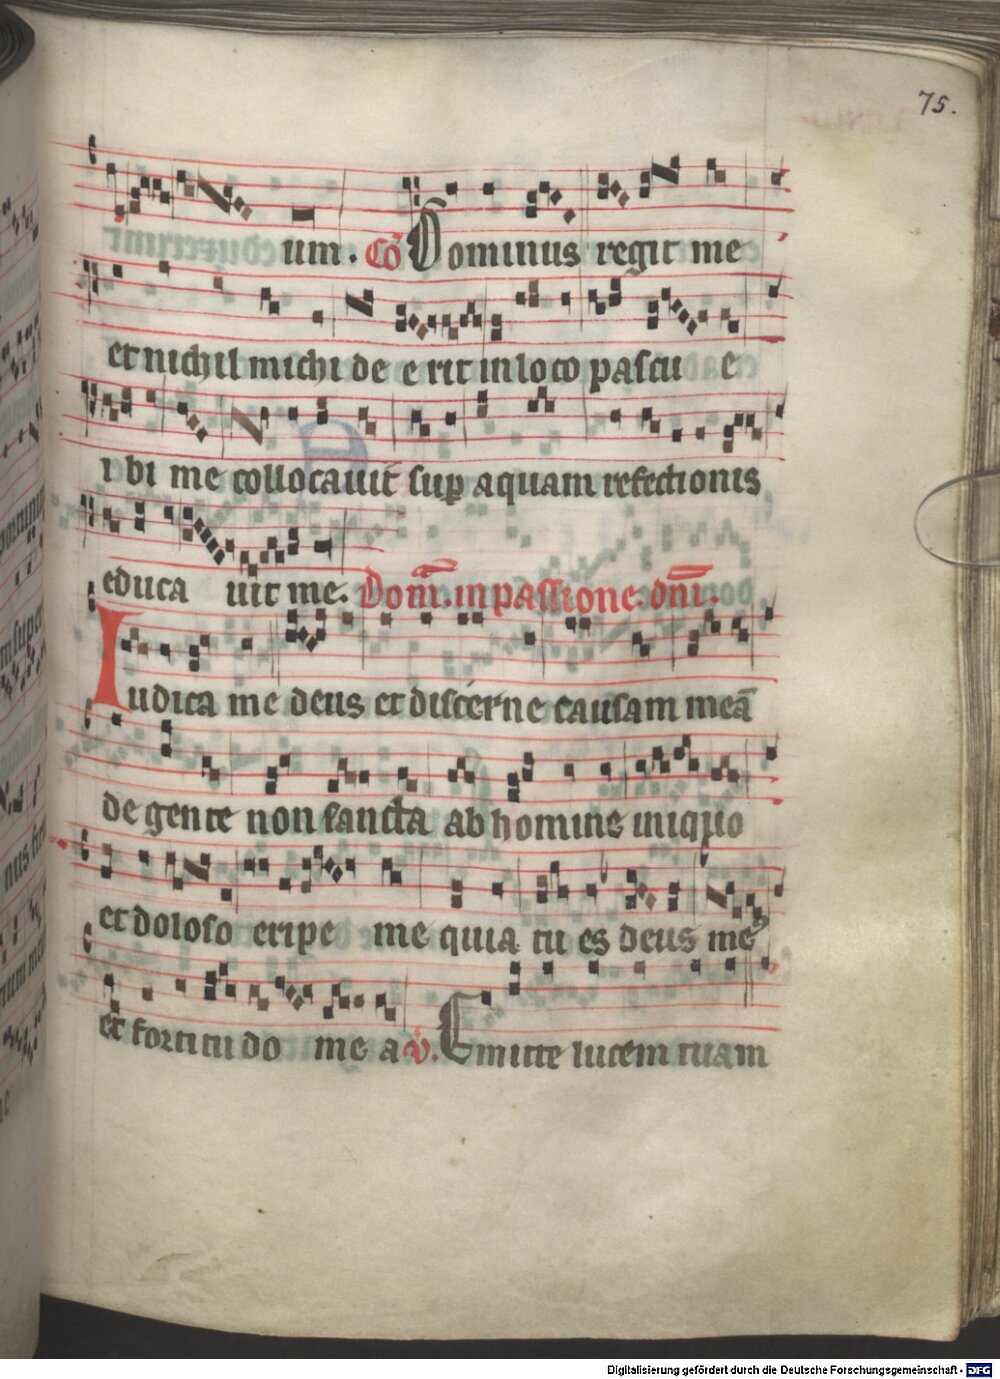 75.
um. Cō Dominus regit me
et nichil michi de e rit in loco pascu e
i bi me collocauit suꝑ aquam refectionis
educa uit me. Dom̄. in passione. dn̄i.
Iudica me deus et discerne causam meā
de gente non sancta ab homine iniquo
et doloso eripe me quia tu es deus me9
et fortitu do me a v̄. Emitte lucem tuam
Digitalisierung gefördert durch die Deutsche Forschungsgemeinschaft - DFG